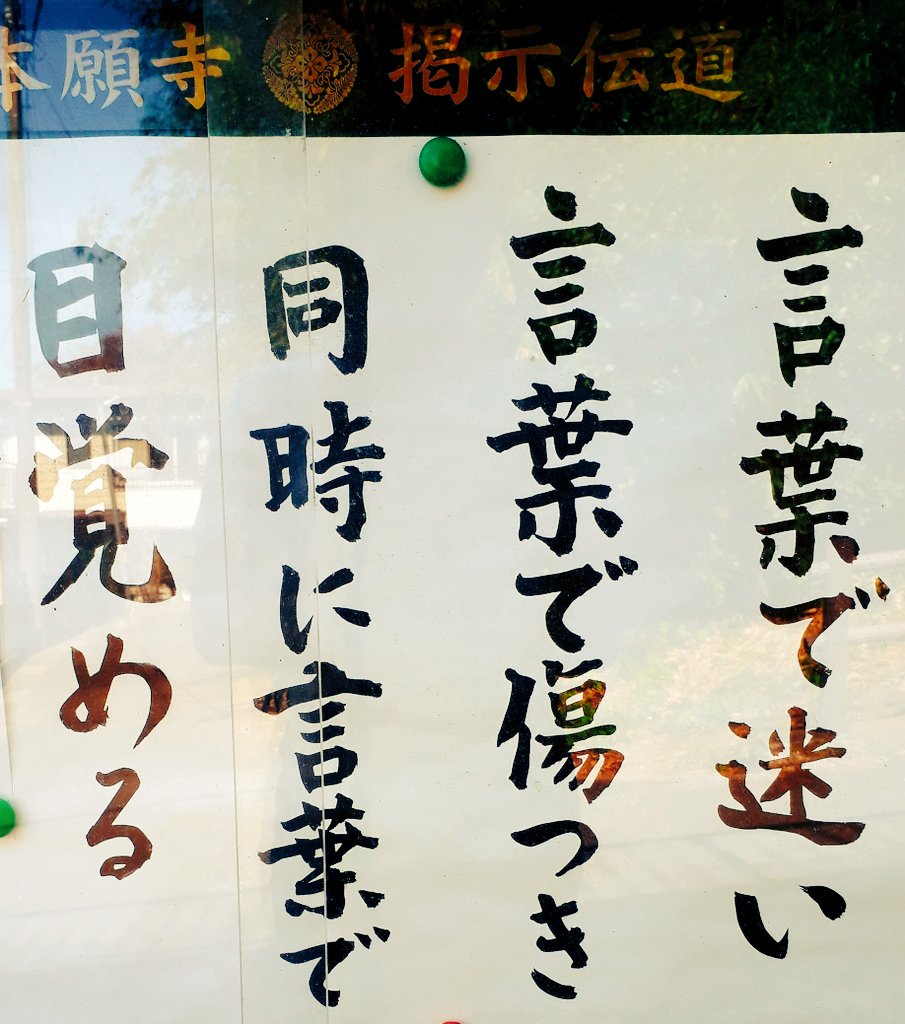 本願寺 掲示伝道
言葉で迷い
言葉で傷つき
同時に言葉で
目覚める